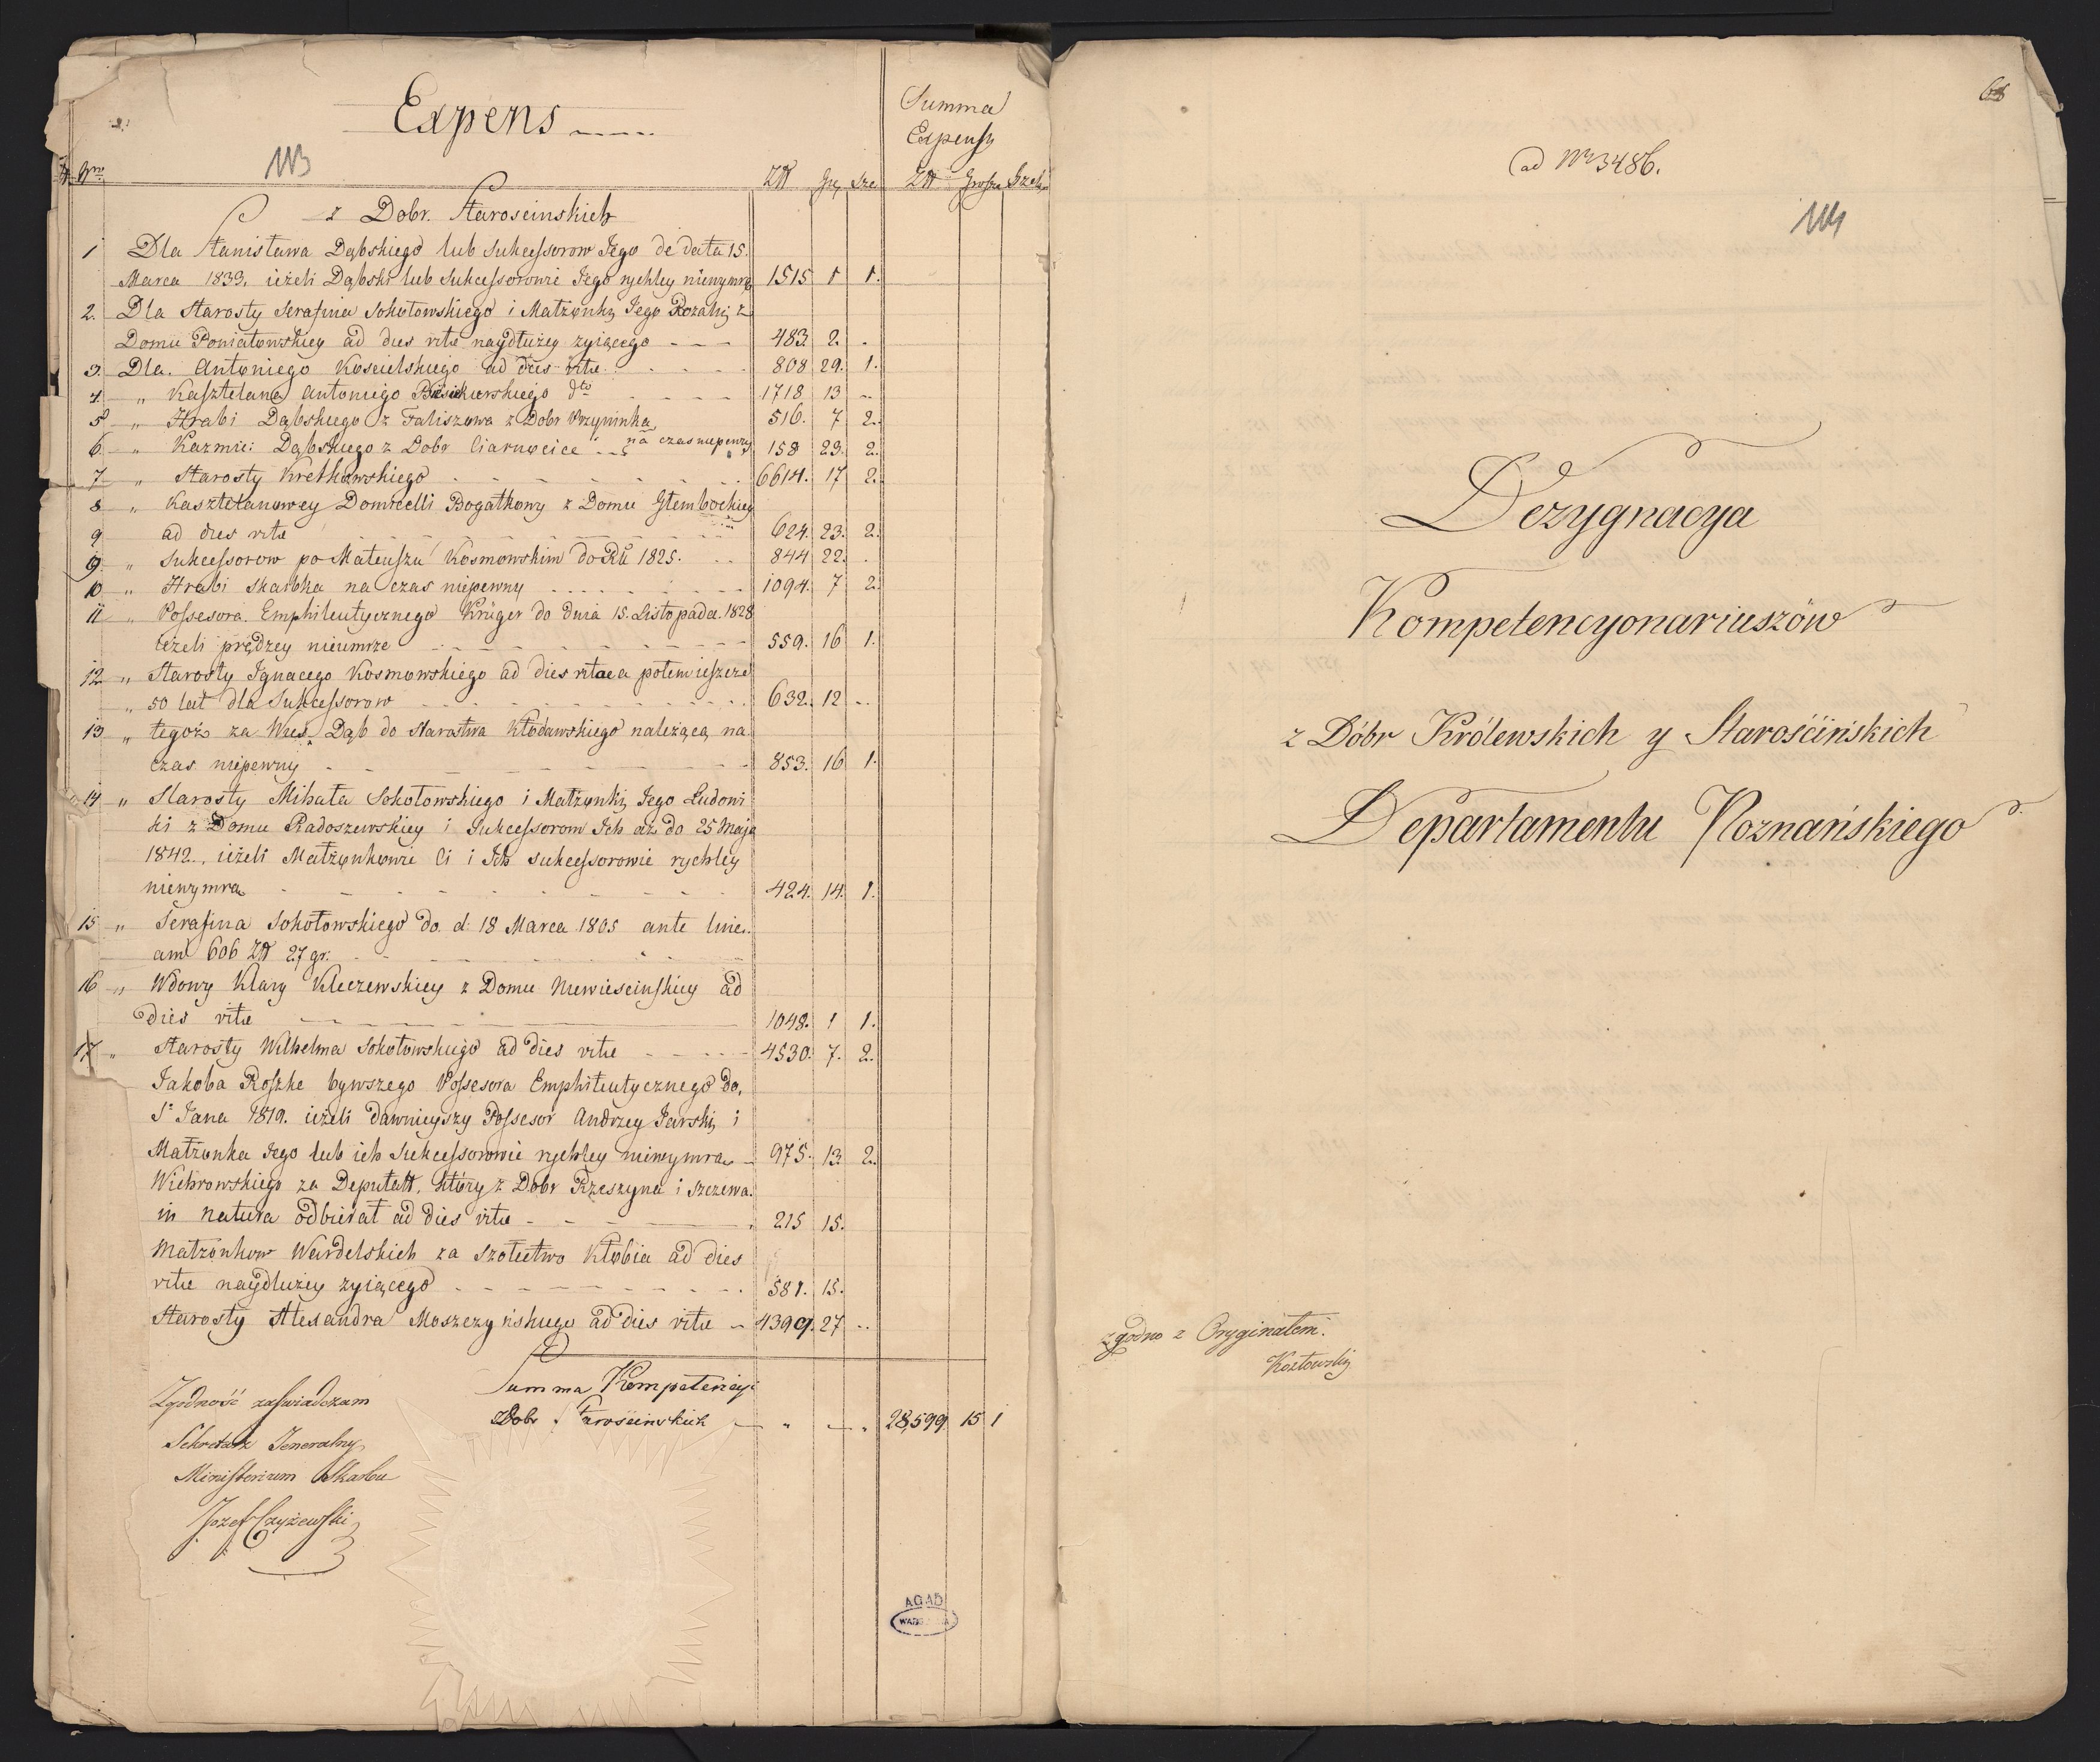 Expens
Summa
Expensy
113
Nro. Złł Gr. Sze. Złł Grosze Szel.
z Dobr. Staroscinskich
1 Dla Stanisława Dąbskiego lub Sukcessorow Jego de data 15.
Marca 1833. ieżeli Dąbski lub Sukcessorowie Jego rychley niewymrą 1515 1 1.
2. Dla Starosty Serafina Sokołowskiego i Małżonki Jego Rozalii z
Domu Poniatowskiey ad dies vitæ naydłużey zyiącego - - - 483 2. .
3. Dla. Antoniego Koscielskiego ad dies vitæ. 808 29. 1.
4. „ Kasztelana Antoniego dto 1718 13 -
5 „ Hrabi Dąbskiego z Faliszewa z Dobr Przyninka 516. 7 2.
6 „ Kazmie: Dąbskiego z Dobr Ciarnocice na czas niepewny 158 23. 2.
7. „ Starosty Kretkowskiego 6614. 17 2.
8 „ Kasztelanowey Domicelli Bogatkowy z Domu Głembockiey
9 ad dies vitæ 624. 23. 2.
9. „ Sukcessorow po Mateuszu Kosmowskim do Ru 1825. 844 22. .
10 „ Hrabi Skarbka na czas niepewny 1094. 7 2.
11 „ Possesora Emphiteutycznego Krüger do dnia 15. Listopada. 1828
ieżeli prędzey nieumrze 559. 16 1.
12 „ Starosty Ignacego Kosmowskiego ad dies vitae a potem ieszcze
„ 50 lat dla Sukcessorow 632. 12 -
13 „ tegoż za Wieś Dąb do Starostwa Kłodawskiego należącą na
czas niepewny 853. 16 1.
14 „ Starosty Mihała Sokołowskiego i Małżonki Jego Ludowi
ki z Domu Radoszewskiey i Sukcessorom Ich aż do 25 Maja
1842., ieżeli Małżonkowie Ci i Ich sukcessorowie rychley
niewymrą 424. 14. 1.
15 „ Serafina Sokołowskiego do d: 18 Marca 1805 ante line
am 606 Złł 27 gr.
16 „ Wdowy Klary Kleczewskiey z Domu Niewiescinskiey ad
dies vitæ 1048. 1 1.
17 „ Starosty Wilhelma Sokołowskiego ad dies vitæ 4530. 7. 2.
Jakoba Roszke bywszego Possesora Emphiteutycznego do.
St Jana 1819. ieżeli dawnieyszy Possesor Andrzey Jarski i
Małżonka Jego lub ich Sukcessorowie rychley niewymrą 975. 13 2.
Wichrowskiego za Deputatt, który z Dobr Rzeszyna i Szczewa.
in natura odbierał ad dies vitæ 215 15.
Małżonkow Wardelskich za szołectwo Kłobia ad dies
vitæ naydłużey zyiącego 581. 15.
Starosty Alexandra Moszczyńskiego ad dies vitæ 4399. 27 -
Summa Kompetencyi
z Dobr Staroscinskich 28,599 15 1
Zgodność zaświadczam
Sekretarz Jeneralny
Ministerium Skarbu
Jozef Czyżewski
AGAD
WARSZAWA
68
ad Nro 3486.
114
Dezygnacya
Kompetencyonariuszów
z Dóbr Królewskich y Starościńskich
Departamentu Poznańskiego
zgodno z Oryginałem.
Kozłowski